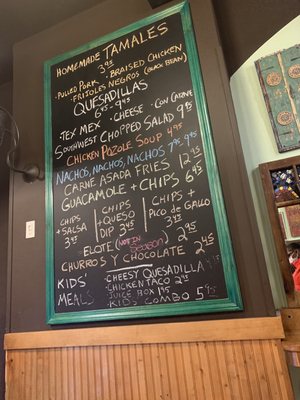 HOMEMADE TAMALES
3.95
• PULLED PORK • BRAISED CHICKEN
• FRIJOLES NEGROS (BLACK BEAN)
QUESADILLAS
6.45 - 9.45
TEX MEX • CHEESE • CON CARNE
SOUTHWEST CHOPPED SALAD 9.95
CHICKEN POZOLE SOUP 4.95
NACHOS, NACHOS, NACHOS 7.95, 9.95
CARNE ASADA FRIES 12.95
GUACAMOLE + CHIPS 6.95
CHIPS + SALSA 3.95
CHIPS + QUESO DIP 3.95
CHIPS + PICO de GALLO 3.95
ELOTE (WHEN IN SEASON) 2.95
CHURROS Y CHOCOLATE 2.45
KIDS MEALS
CHEESY QUESADILLA
• CHICKEN TACO 2.95
JUICE BOX 1.95
KIDS COMBO 5.95